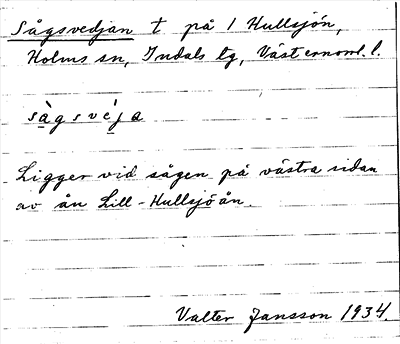 Sågsvedjan t på 1 Hullsjön,
Holms sn, Indals tg, Västernorrl. l.
sàgsvéja
Ligger vid sågen på västra sidan
av ån Lill-Hullsjöån.
Valter Jansson 1934.